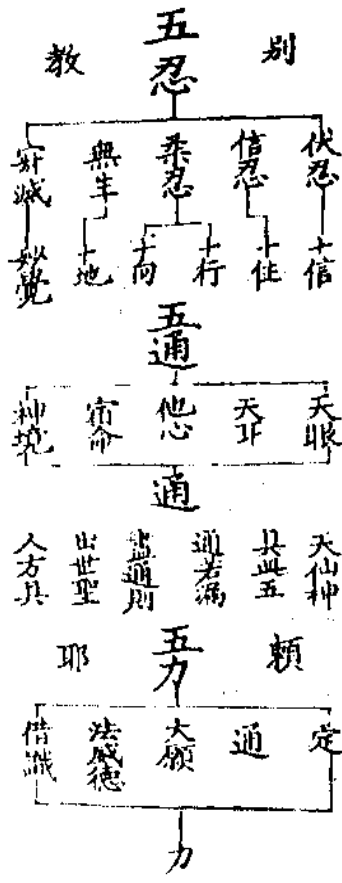 別 五忍 教
伏忍 信忍 柔忍 無生 寂滅
十信 十住 十行 十向 十地 妙覺
五通
天眼 天耳 他心 宿命 神境
通
天仙神
具此五
通若漏
盡通則
出世聖
人方具
頼 五力 耶
定 通 大願 法威德 借識
力